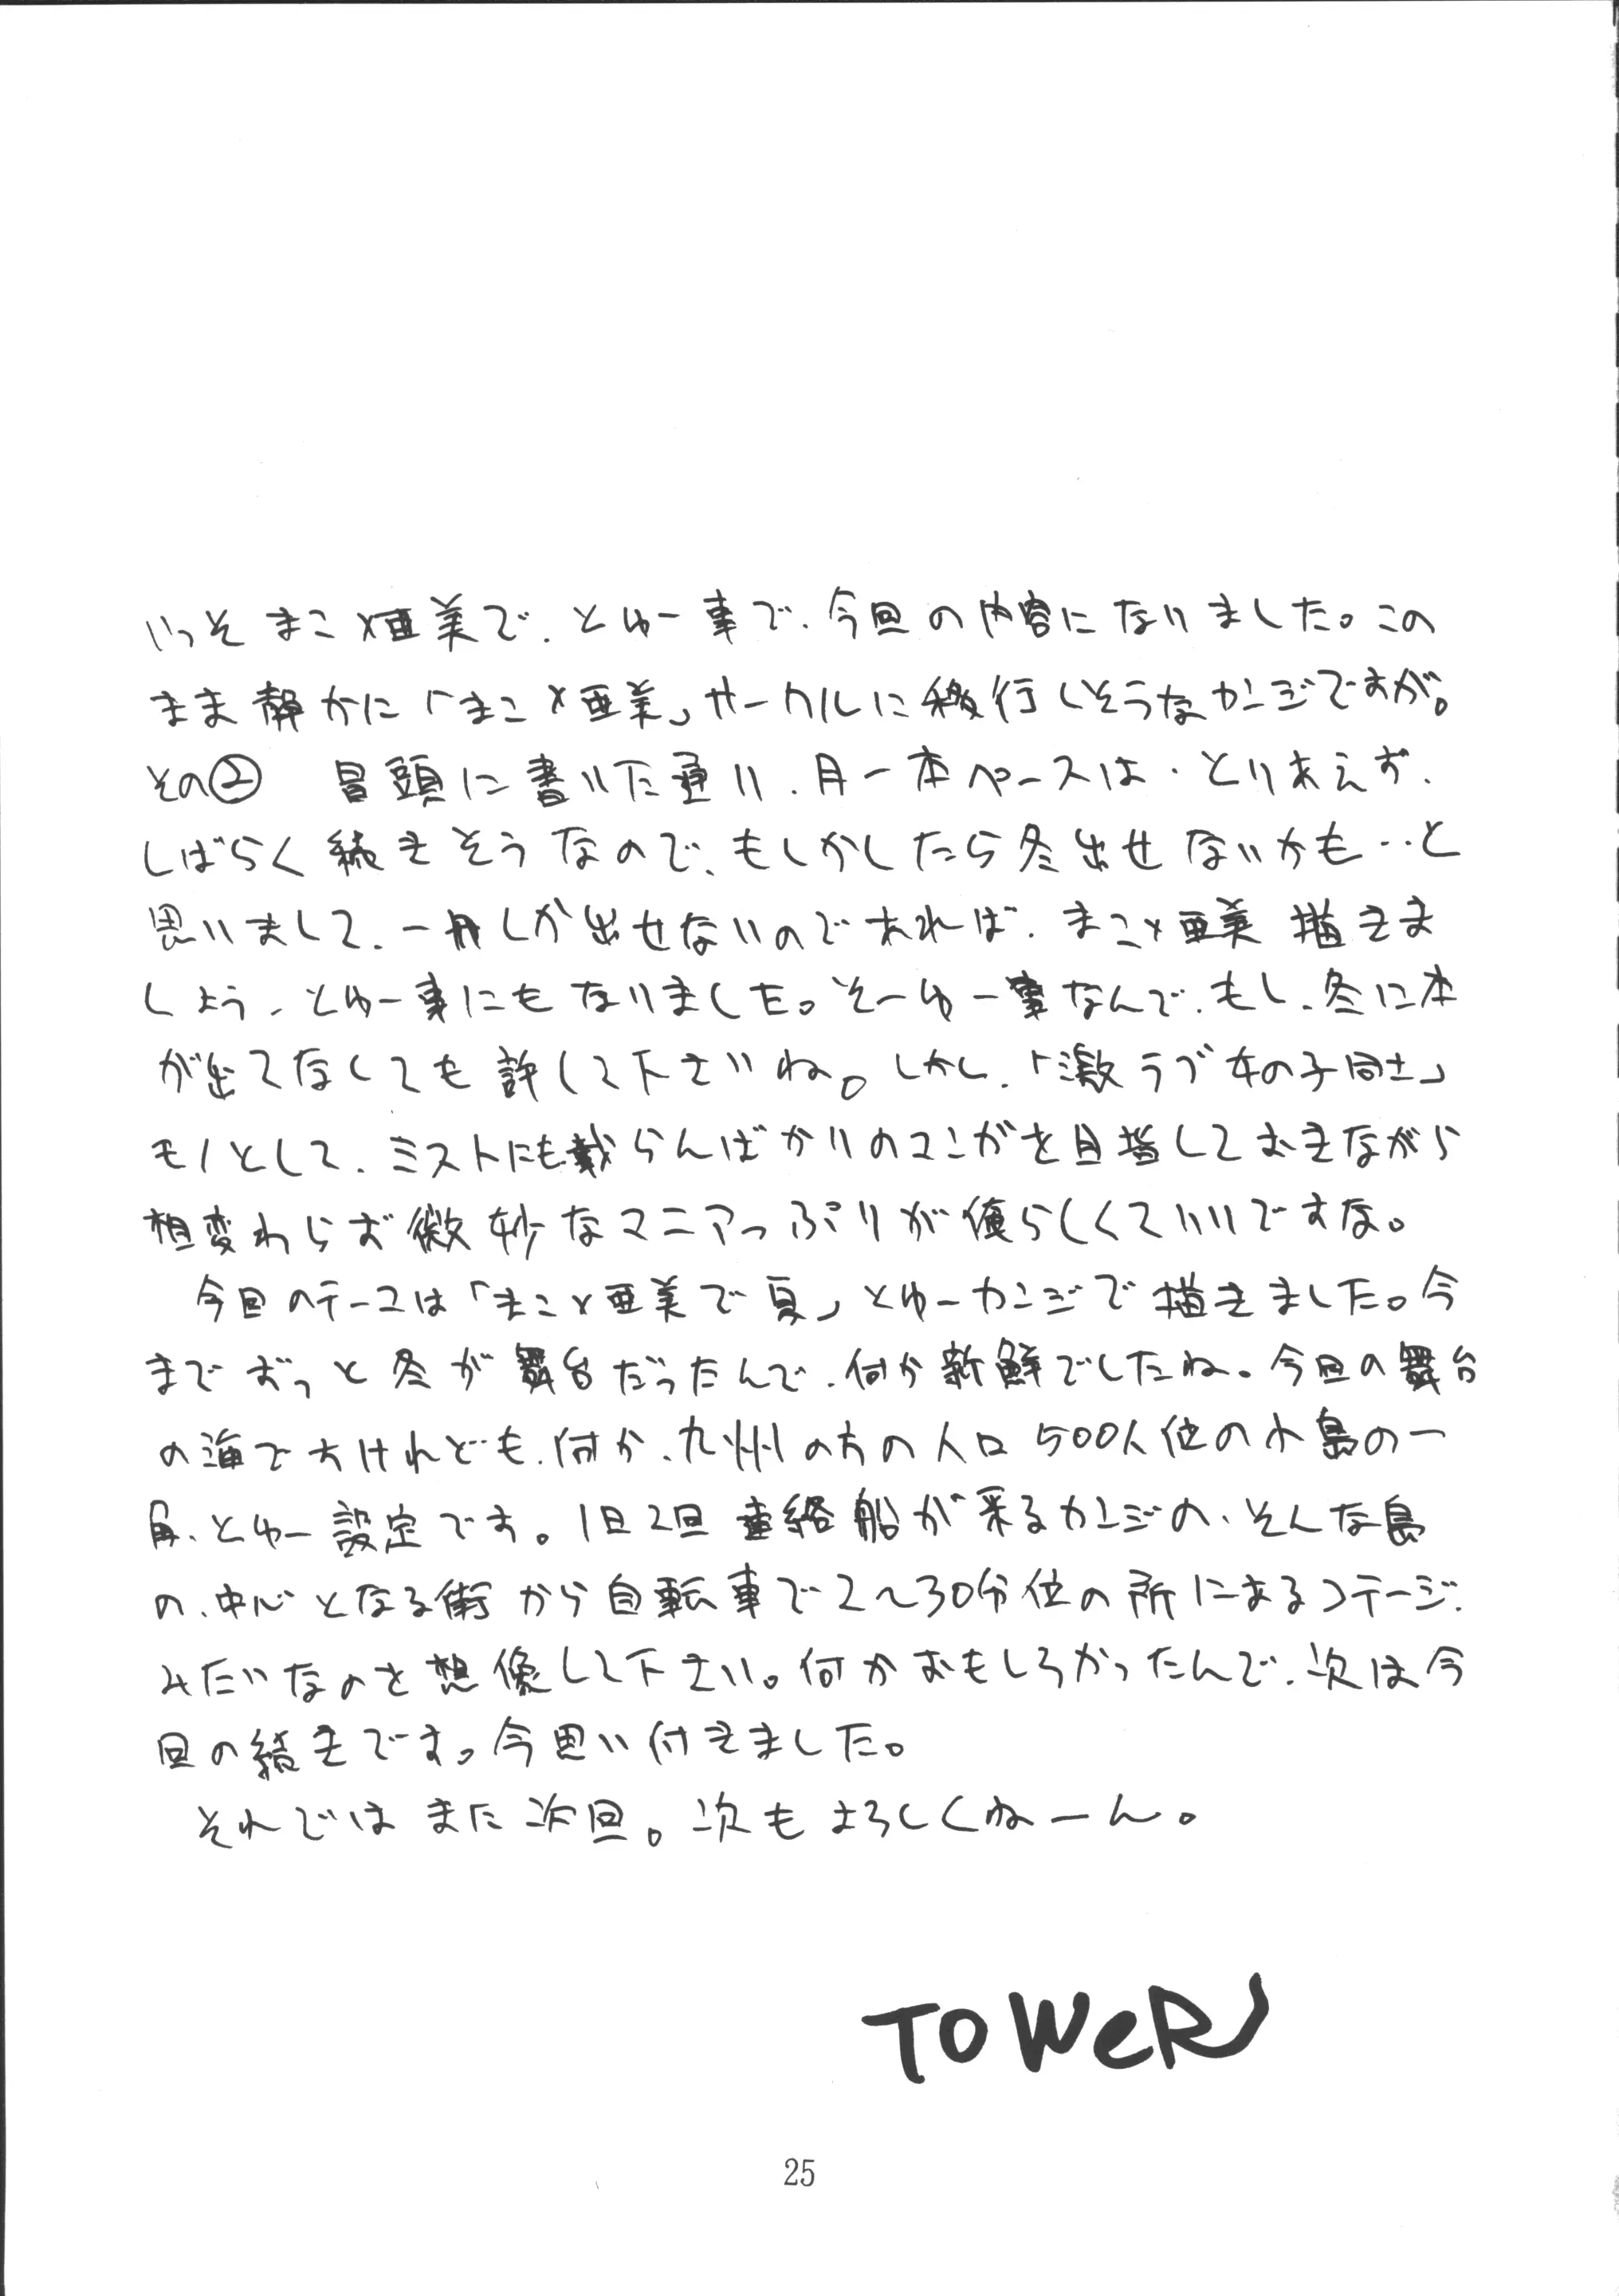 いっそまこ×亜美で、とゆー事で、今回の内容になりました。この
まま静かに「まこ×亜美」サークルに移行しそうなカンジですが。
その② 冒頭に書いた通り、月一本ペースは、とりあえず、
しばらく続きそうなので、もしかしたら冬出せないかも…と
思いまして、一冊しか出せないのであれば、まこ×亜美描きま
しょう、とゆー事にもなりました。そーゆー事なんで、もし、冬に本
が出てなくても許して下さいね。しかし、「激ラブ女の子同士」
モノとして、ミストにも載らんばかりのマンガを目指しておきながら
相変わらず微妙なマニアっぷりが俺らしくていいですな。
今回のテーマは「まこ×亜美で夏」とゆーカンジで描きました。今
までずっと冬が舞台だったんで、何か新鮮でしたね。今回の舞台
の海ですけれども、何か、九州の方の人口500人位の小島の一
角、とゆー設定です。1日2回連絡船が来るカンジの、そんな島
の、中心となる街から自転車で2〜30分位の所にあるコテージ、
みたいなのを想像して下さい。何かおもしろかったんで、次は今
回の続きです。今思い付きました。
それではまた次回。次もよろしくねーん。
TOWeR
25